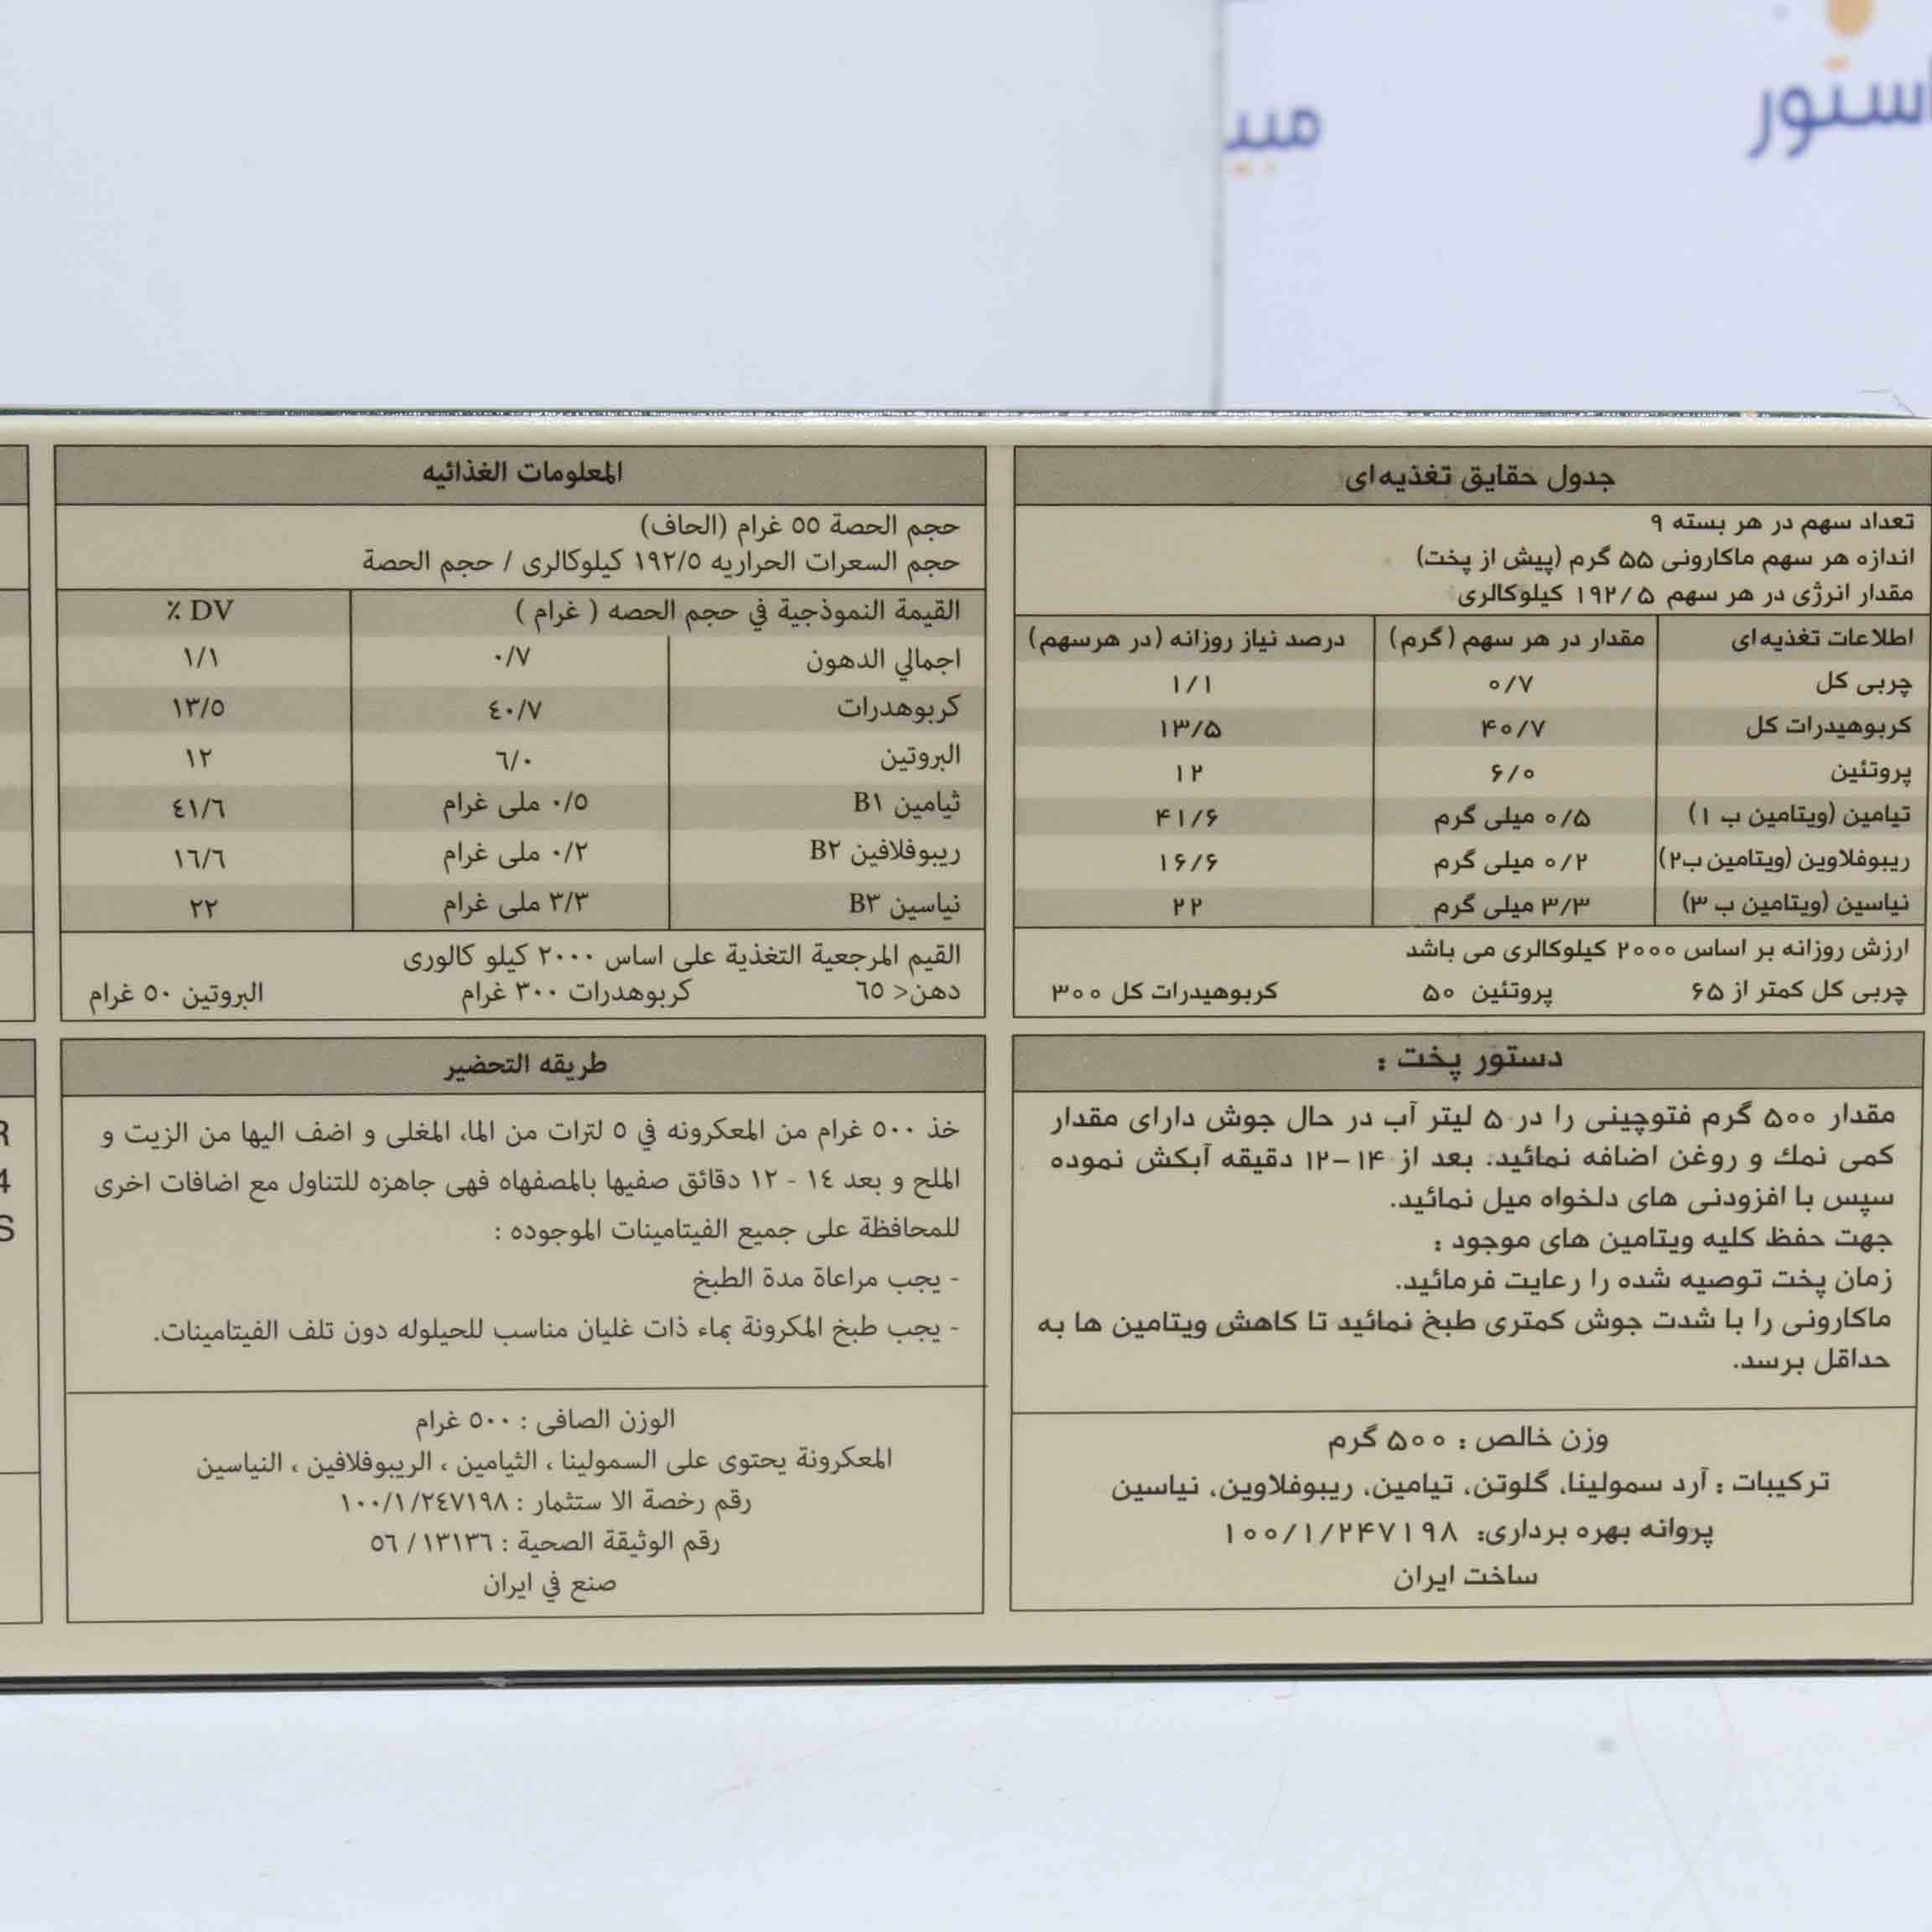 استور
مبیـ
جدول حقایق تغذیه ای
تعداد سهم در هر بسته ۹
اندازه هر سهم ماکارونی ۵۵ گرم (پیش از پخت)
مقدار انرژی در هر سهم ۱۹۲/۵ کیلوکالری
اطلاعات تغذیه ای مقدار در هر سهم (گرم) درصد نیاز روزانه (در هرسهم)
چربی کل ۰/۷ ۱/۱
کربوهیدرات کل ۴۰/۷ ۱۳/۵
پروتئین ۶/۰ ۱۲
تیامین (ویتامین ب ۱) ۰/۵ میلی گرم ۴۱/۶
ریبوفلاوین (ویتامین ب۲) ۰/۲ میلی گرم ۱۶/۶
نیاسین (ویتامین ب ۳) ۳/۳ میلی گرم ۲۲
ارزش روزانه بر اساس ۲۰۰۰ کیلوکالری می باشد
چربی کل کمتر از ۶۵ پروتئین ۵۰ کربوهیدرات کل ۳۰۰
دستور پخت :
مقدار ۵۰۰ گرم فتوچینی را در ۵ لیتر آب در حال جوش دارای مقدار
کمی نمك و روغن اضافه نمائید. بعد از ۱۴-۱۲ دقیقه آبکش نموده
سپس با افزودنی های دلخواه میل نمائید.
جهت حفظ کلیه ویتامین های موجود :
زمان پخت توصیه شده را رعایت فرمائید.
ماکارونی را با شدت جوش کمتری طبخ نمائید تا کاهش ویتامین ها به
حداقل برسد.
وزن خالص : ۵۰۰ گرم
ترکیبات : آرد سمولینا، گلوتن، تیامین، ریبوفلاوین، نیاسین
پروانه بهره برداری: ۱۰۰/۱/۲۴۷۱۹۸
ساخت ایران
المعلومات الغذائیه
حجم الحصة ٥٥ غرام (الحاف)
حجم السعرات الحراریه ١٩٢/٥ کیلوکالری / حجم الحصة
القیمة النموذجیة في حجم الحصه ( غرام ) ٪ DV
اجمالي الدهون ٠/٧ ١/١
کربوهدرات ٤٠/٧ ١٣/٥
البروتین ٦/٠ ١٢
ثیامین B١ ٠/٥ ملی غرام ٤١/٦
ریبوفلافین B٢ ٠/٢ ملی غرام ١٦/٦
نیاسین B٣ ٣/٣ ملی غرام ٢٢
القیم المرجعیة التغذیة على اساس ٢٠٠٠ کیلو کالوری
دهن< ٦٥ کربوهدرات ٣٠٠ غرام البروتین ٥٠ غرام
طریقه التحضیر
خذ ٥٠٠ غرام من المعکرونه في ٥ لترات من الماء المغلی و اضف الیها من الزیت و
الملح و بعد ١٤ - ١٢ دقائق صفیها بالمصفهاه فهی جاهزه للتناول مع اضافات اخری
للمحافظة على جمیع الفیتامینات الموجوده :
- یجب مراعاة مدة الطبخ
- یجب طبخ المکرونة بماء ذات غلیان مناسب للحیلوله دون تلف الفیتامینات.
الوزن الصافی : ٥٠٠ غرام
المعکرونة یحتوی على السمولینا ، الثیامین ، الریبوفلافین ، النیاسین
رقم رخصة الا ستثمار : ١٠٠/١/٢٤٧١٩٨
رقم الوثیقة الصحیة : ٥٦ / ١٣١٣٦
صنع في ایران
R
4
S